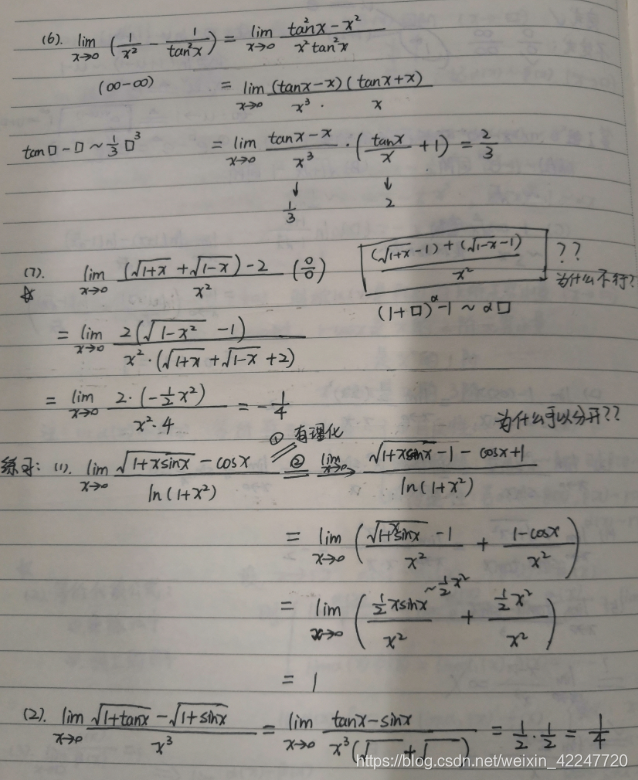 (6). lim x→0 (1/x² - 1/tan²x) = lim x→0 (tan²x - x²)/(x² tan²x)
(∞-∞) = lim x→0 (tanx-x)(tanx+x)/(x³ · x)
tan□-□ ~ 1/3 □³ = lim x→0 (tanx-x)/x³ · (tanx/x + 1) = 2/3
↓ ↓
1/3 2
(7). lim x→0 ((√(1+x) + √(1-x)) - 2)/x² (0/0) ((√(1+x) -1) + (√(1-x) -1))/x² ??
☆ 为什么不行?
(1+□)^α -1 ~ α□
= lim x→0 2(√(1-x²) -1)/(x²·(√(1+x) + √(1-x) +2))
= lim x→0 2·(-1/2 x²)/(x²·4) = -1/4
为什么可以分开??
① 有理化
练习: (1). lim x→0 (√(1+xsinx) - cosx)/ln(1+x²) ② = lim x→0 (√(1+xsinx) -1 - cosx+1)/ln(1+x²)
= lim x→0 ((√(1+xsinx) -1)/x² + (1-cosx)/x²)
= lim x→0 ((1/2 xsinx)/x² + (1/2 x²)/x²) ~1/2 x²
= 1
(2). lim x→0 (√(1+tanx) - √(1+sinx))/x³ = lim x→0 (tanx-sinx)/(x³(√ + √ )) = 1/2 · 1/2 = 1/4
https://blog.csdn.net/weixin_42247720